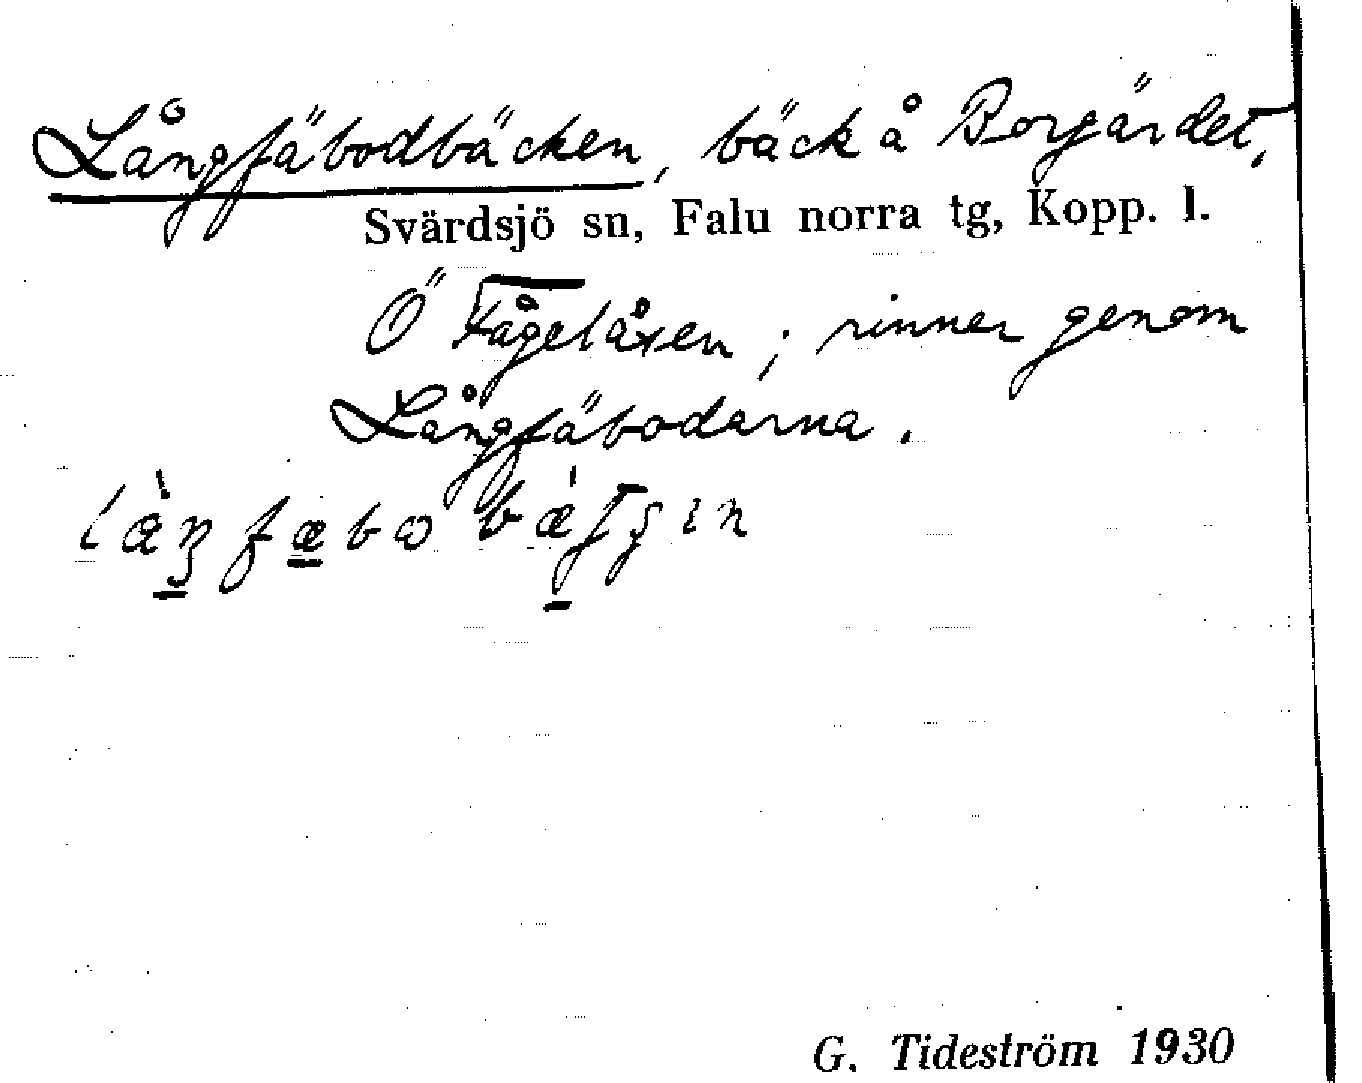 Långfäbodbäcken, bäck å Borgärdet,
Svärdsjö sn, Falu norra tg, Kopp. l.
Ö Fågelåsen; rinner genom
Långfäbodarna.
G. Tideström 1930